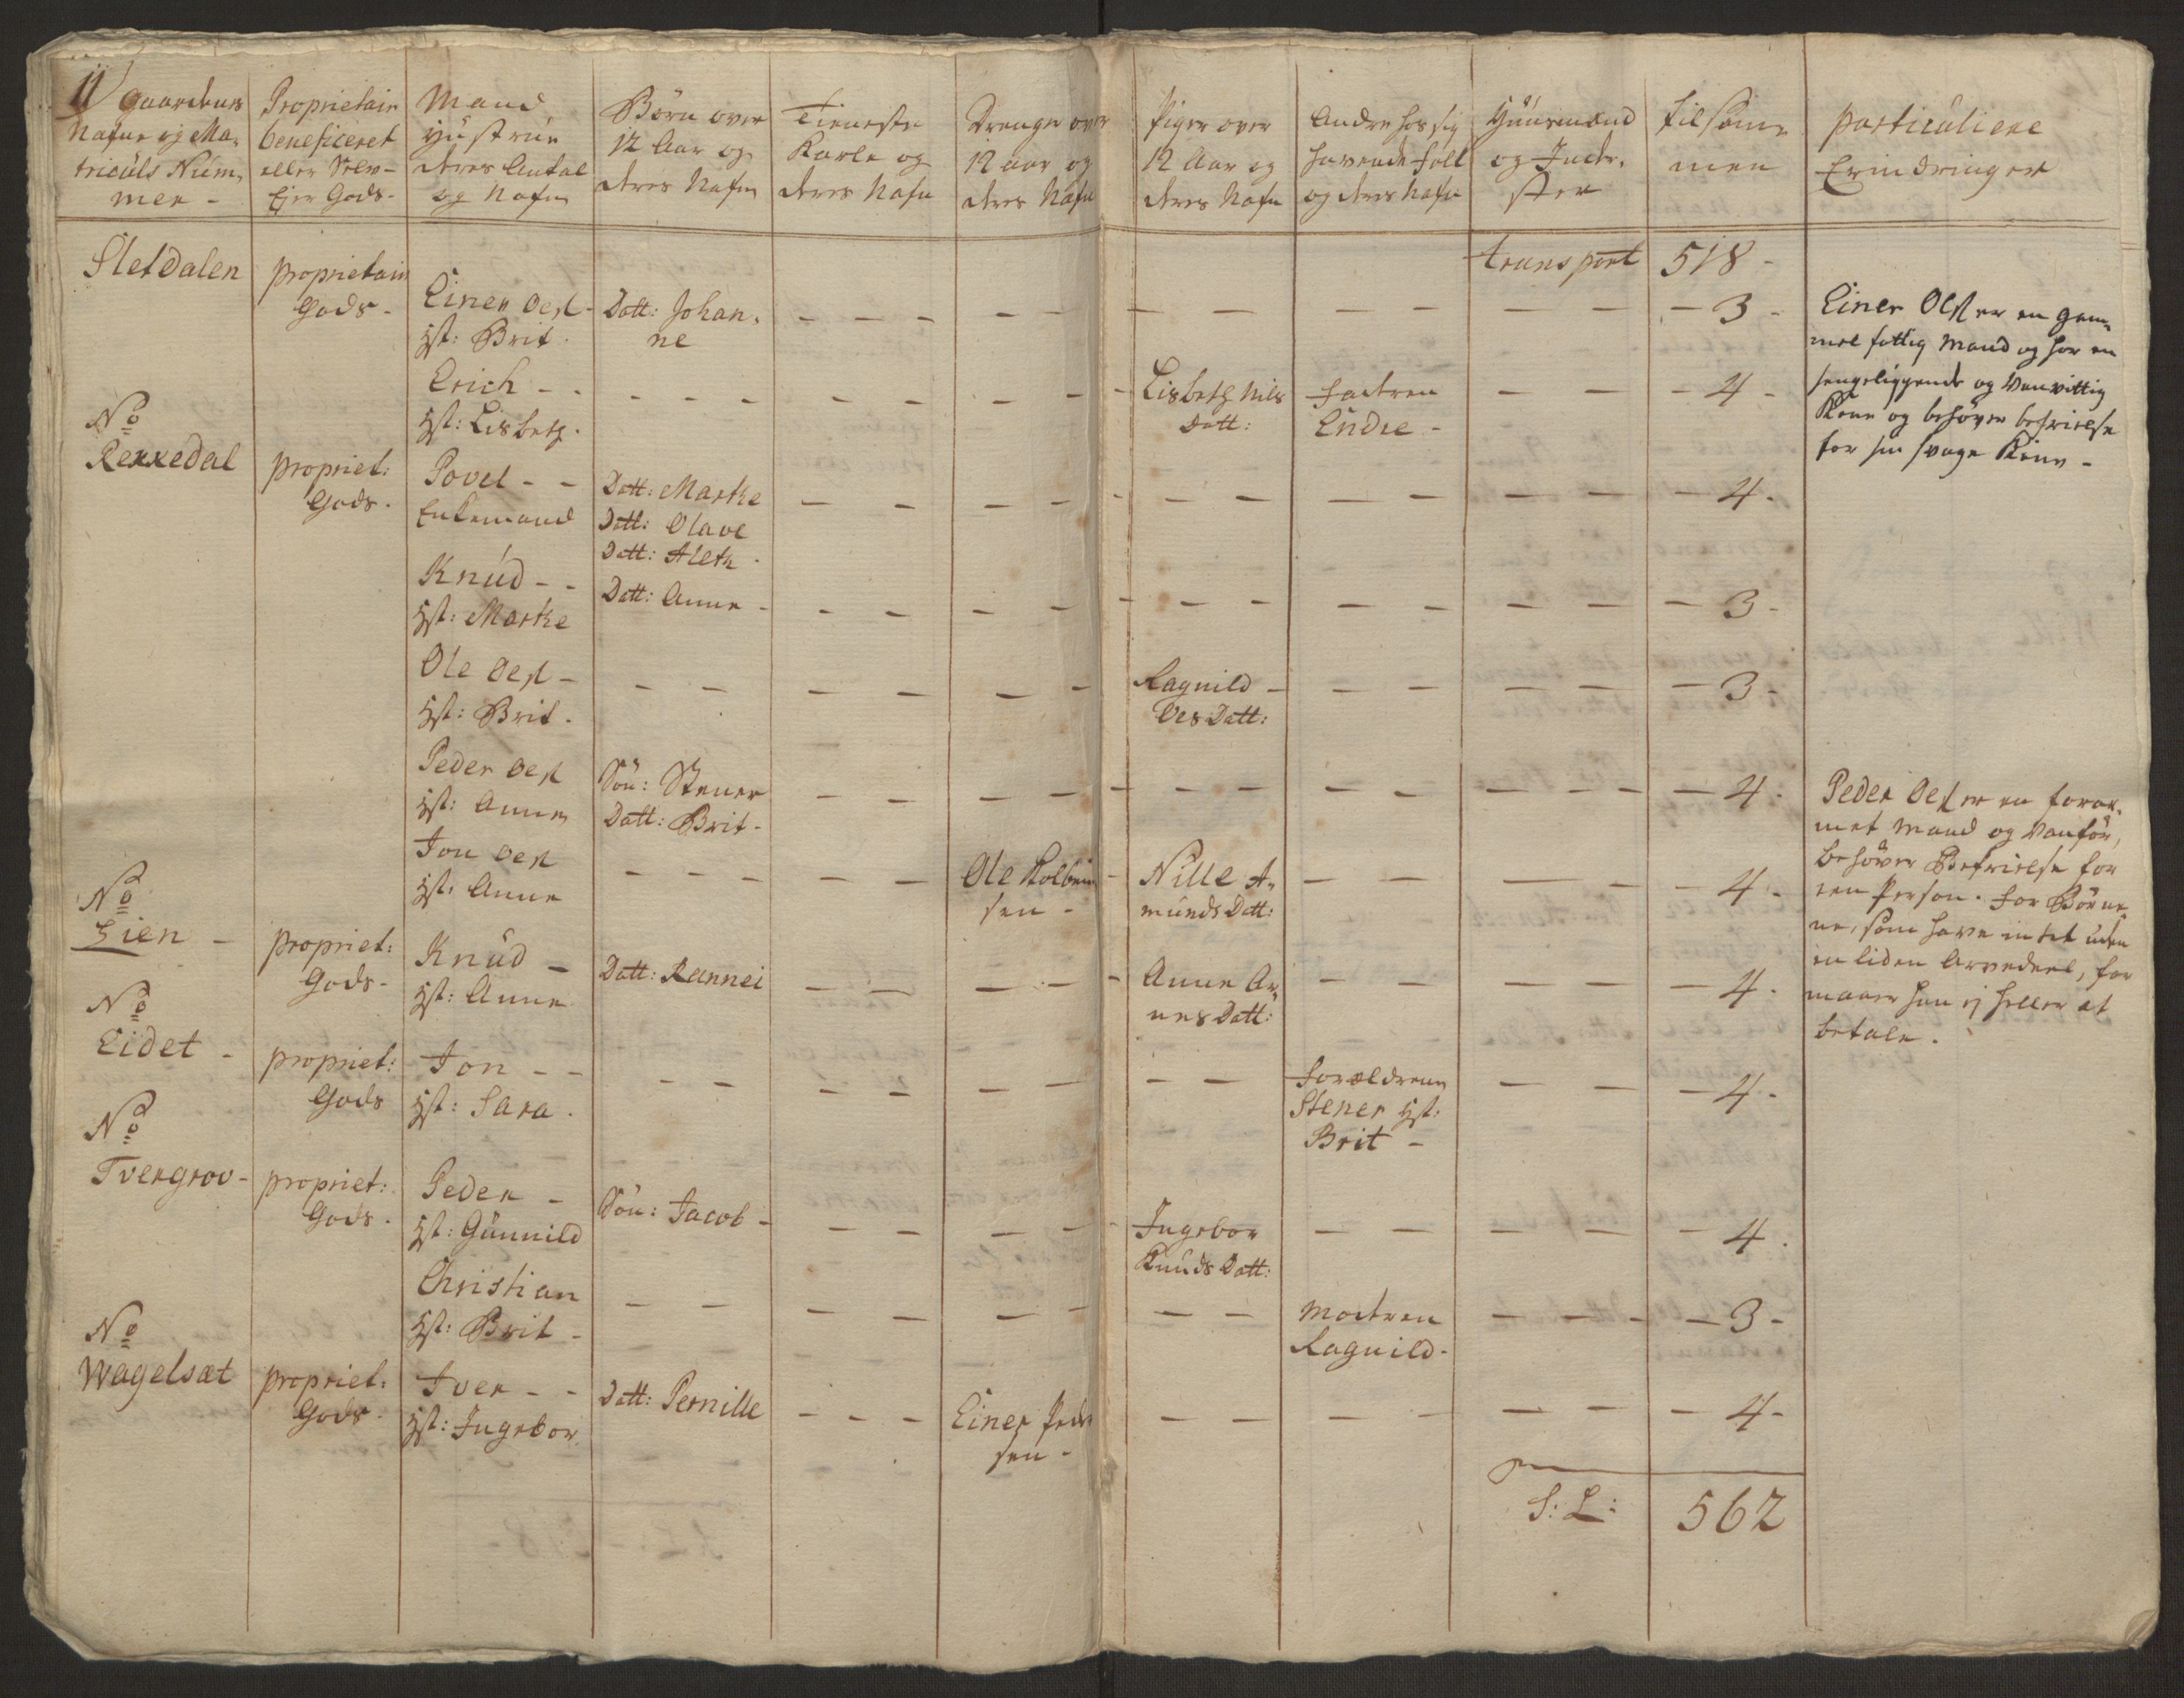 11
Gaardenes
Nafne og Ma-
triculs Num-
mer -
Proprietair
beneficeret
eller Selv-
Ejer Gods -
Mand
Hustrue
deres Antal
og Nafn
Börn over
12 Aar og
deres Nafn
Tieneste
Karle og
deres Nafn
Drenge over
12 aar og
deres Nafn
Piger over
12 Aar og
deres Nafn
Andre hos sig
havende Folk
og deres Nafn
Huusmænd
og Inder-
ster
tilsam-
men
particuliere
Erindringer
transport 518 -
Sletdalen
proprietair
Gods -
Einer Oest -
Hst: Brit .
Datt: Johan-
ne
- 3 -
Erich - -
Hst: Lisbeth .
Lisbeth Nils
Datt:
Fadren
Endre -
- 4 -
Einer Olst er en gam-
mel fattig Mand og har en
sengeliggende og Vanvittig
Kone og behöver befrielse
for sin svage Kone -
No
Rekkedal
propriet:
Gods .
Povel - -
Enkemand
Datt: Marthe
Datt: Olave
Datt: Aleth .
- 4 -
Knud - -
Hst: Marthe
Datt: Anne -
- 3 -
Ole Oest -
Hst: Brit .
Ragnild -
Oles Datt:
- 3 -
Peder Oest
Hst: Anne
Sön: Stener
Datt: Brit -
- 4 -
Peder Oest er en forar-
met Mand og Vanför,
behöver Befrielse for
een Person . for Börne-
ne, som have intet uden
en liden Arvedeel, for
maaer han ej heller at
betale .
Jon Oest
Hst: Anne
Ole Kolbein
sen -
Nille A-
munds Datt:
- 4 -
No
Lien -
propriet:
Gods -
Knud -
Hst: Anne
Datt: Rannei
Anne Ar-
nes Datt:
- 4 -
No
Eidet -
propriet:
Gods
Jon - -
Hst: Sara .
Forældrene
Stener Hst:
Brit -
- 4 -
No
Tvergrov -
propriet:
Gods .
Peder -
Hst: Gunnild
Sön: Jacob -
Ingebor
Knuds Datt:
- 4 .
Christian
Hst: Brit -
Modren
Ragnild -
- 3 -
No
Wagelsæt
propriet:
Gods -
Iver - -
Hst: Ingebor
Datt: Pernille
Einer Peder
sen -
- 4 -
S: L: 562